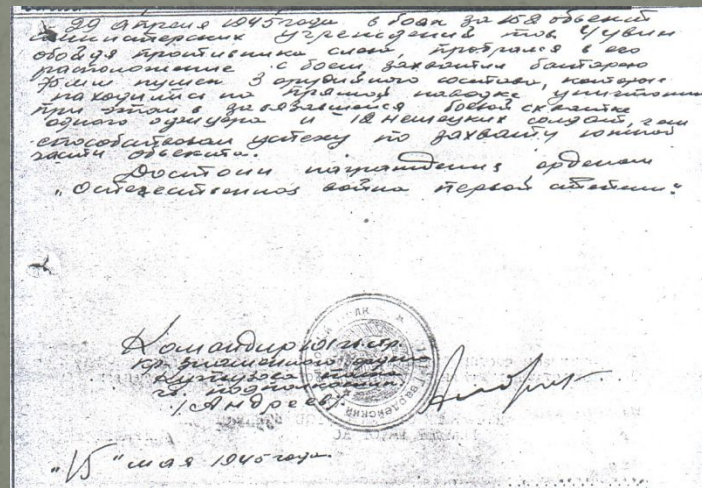 29 апреля 1945 года в боях за 168 объект
министерских учреждений тов Чувин
обойдя противника слева, прорвался в его
расположение с боем, захватил батарею
75 мм пушек 3 орудийного состава, которые
находились на прямой наводке, уничтожив
при этом в завязавшейся боевой схватке
одного офицера и 12 немецких солдат, чем
способствовал успеху по захвату южной
части объекта.
Достоин награждения орденом
„Отечественная война первой степени“
Командир гв. стр.
кр. знаменного ордена
Кутузова полка
гв. подполковник
/Андреев/.
"15" мая 1945 года.